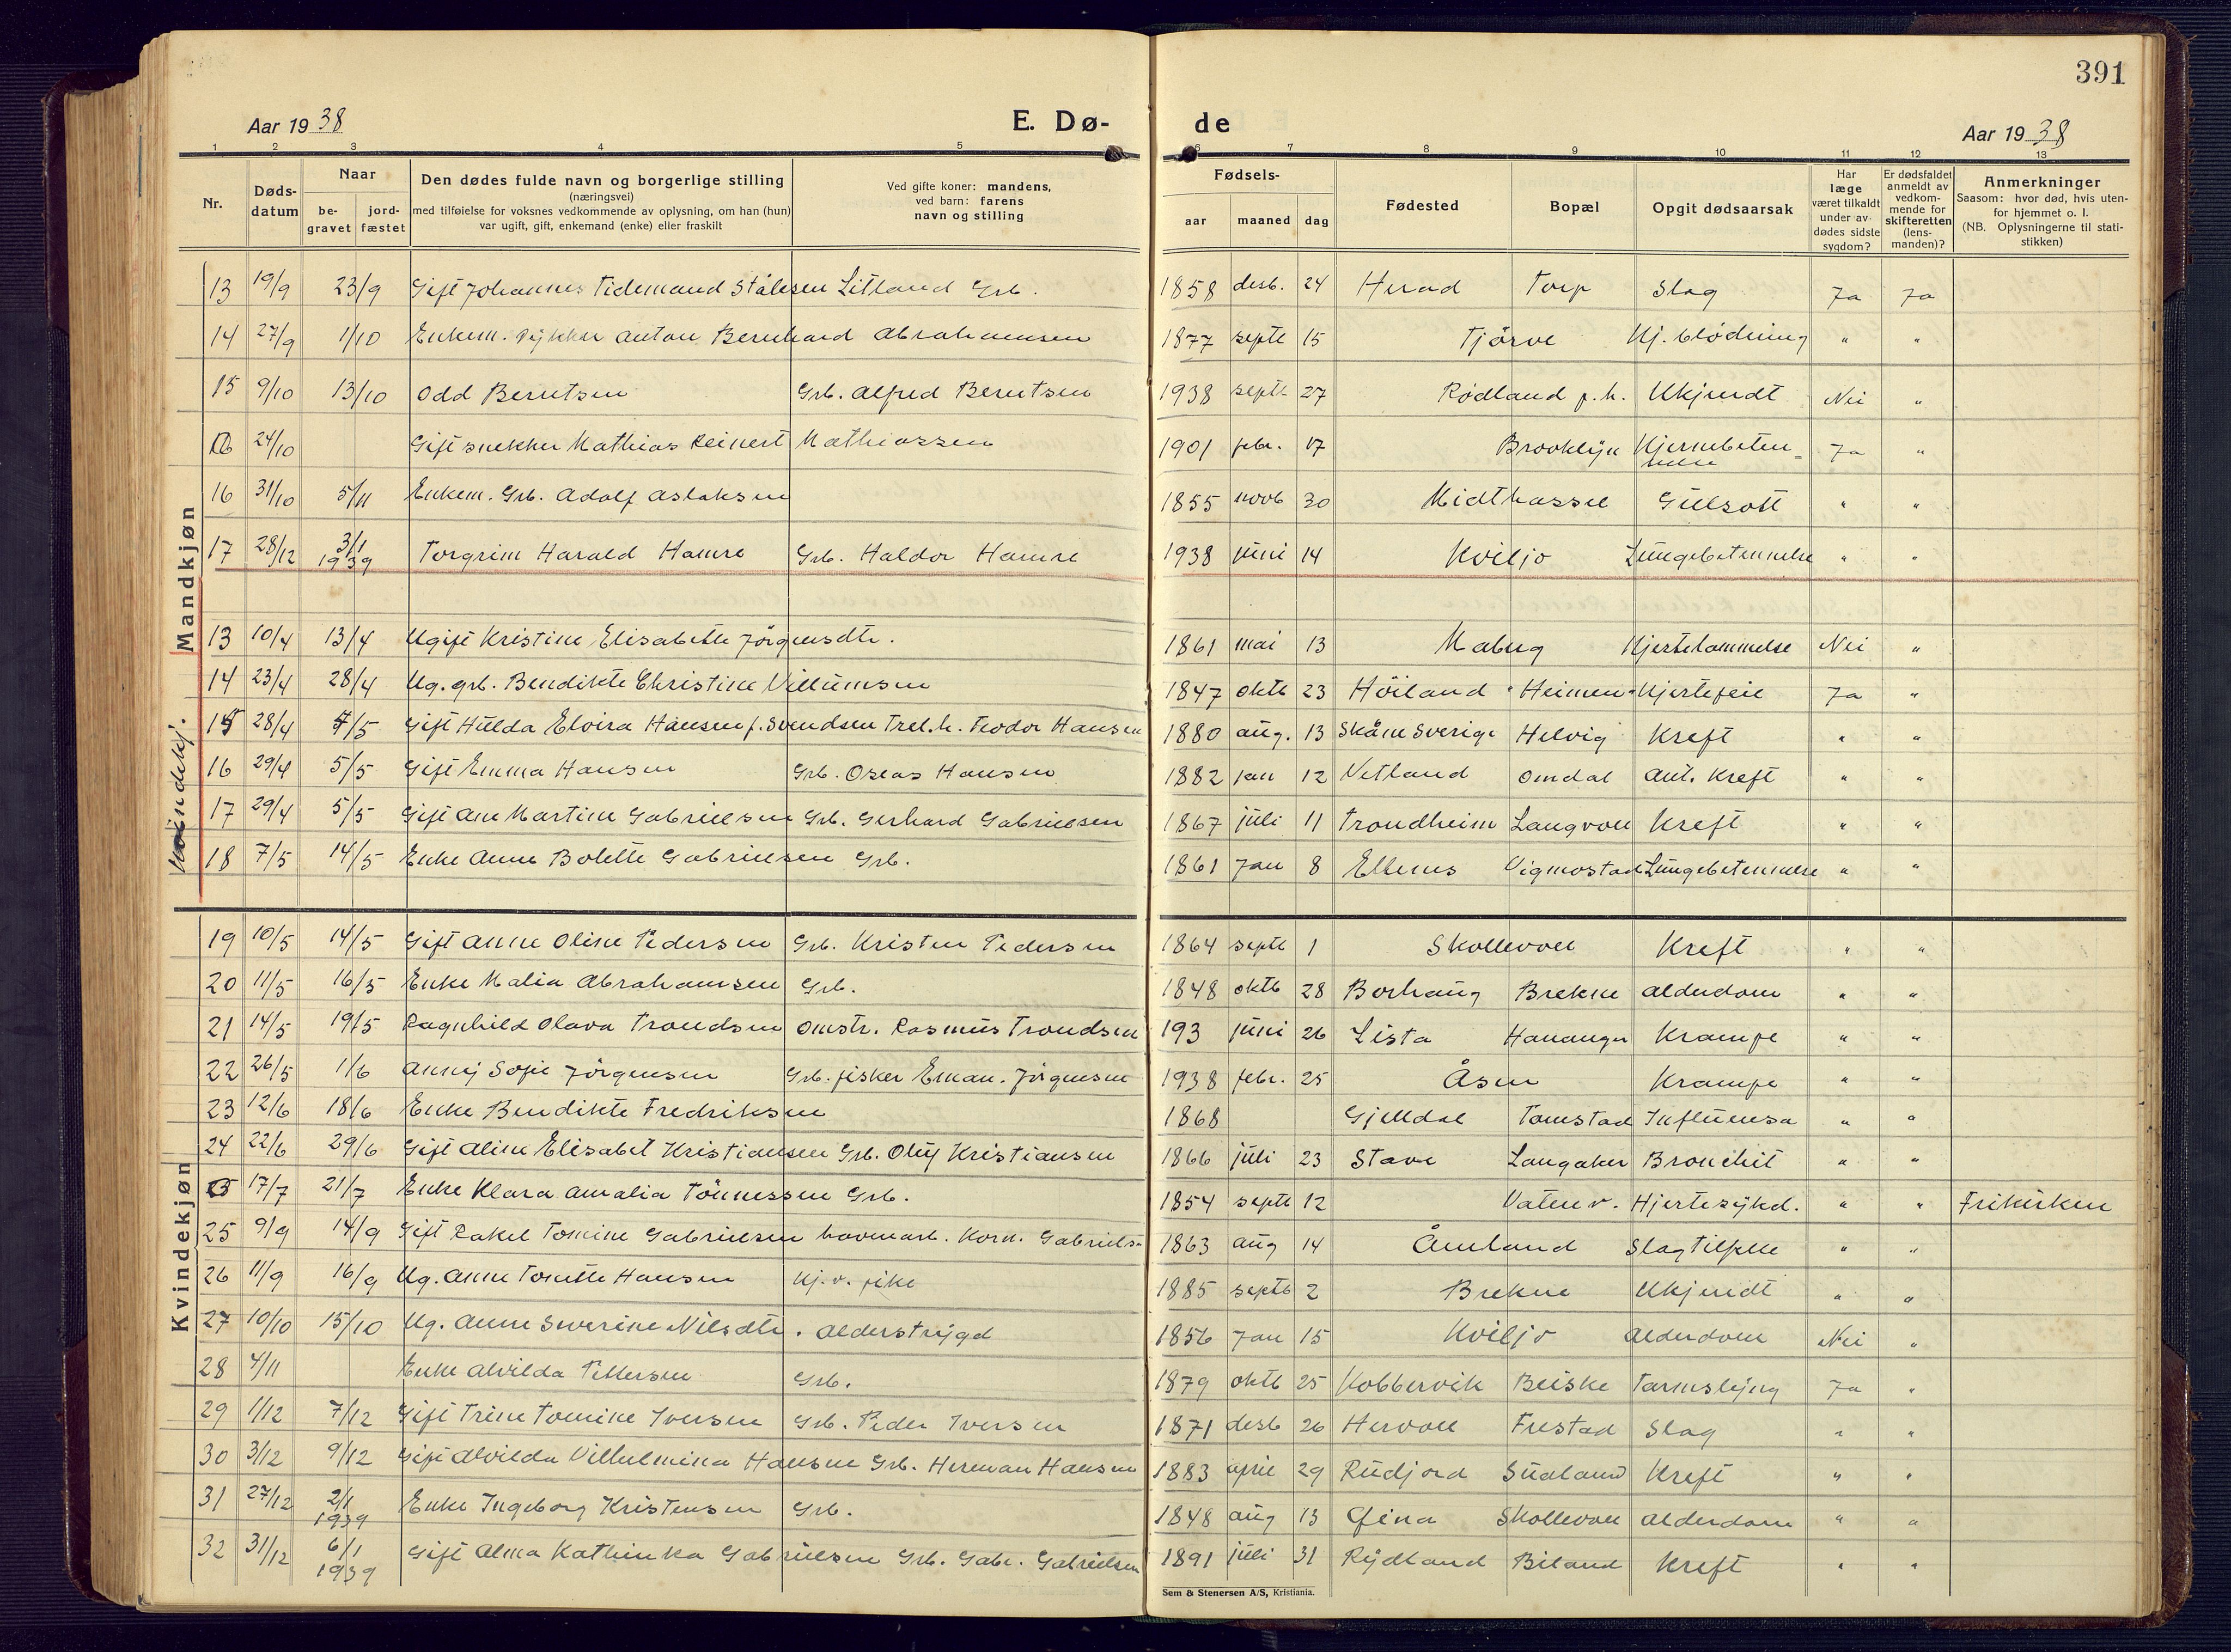 391
Aar 1938
E. Dø-
de
Aar 1938
1 2 3 4 5 6 7 8 9 10 11 12 13
Nr.
Døds-
datum
Naar
be-
gravet
jord-
fæstet
Den dødes fulde navn og borgerlige stilling
(næringsvei)
med tilføielse for voksnes vedkommende av oplysning, om han (hun)
var ugift, gift, enkemand (enke) eller fraskilt
Ved gifte koner: mandens,
ved barn: farens
navn og stilling
Fødsels-
aar maaned dag
Fødested
Bopæl
Opgit dødsaarsak
Har
læge
været tilkaldt
under av-
dødes sidste
sygdom?
Er dødsfaldet
anmeldt av
vedkom-
mende for
skifteretten
(lens-
manden)?
Anmerkninger
Saasom: hvor død, hvis uten-
for hjemmet o. l.
(NB. Oplysningerne til stati-
stikken)
Mandkjøn
13 19/9 23/9 Gift Johannes Tidemand Stålesen Litland Grb. 1858 desb. 24 Herad Torp Slag Ja Ja
14 27/9 1/10 Enkem. Anton Bernhard Abrahamsen 1877 septb 15 Tjörve Hj. blödning " "
15 9/10 13/10 Odd Berntsen Grb. Alfred Berntsen 1938 septb 27 Rödland p.h. Ukjendt Nei "
24/10 Gift snekker Mathias Reinert Mathiassen 1901 febr. 17 Brooklyn Hjernebeten-
nelse Ja "
16 31/10 5/11 Enkem. Grb. Adolf Aslaksen 1855 novb 30 Midthassel Gülsott " "
17 28/12 3/1 1939 Torgrim Harald Hamre Grb. Haldor Hamre 1938 juni 14 Kviljo Lungebetennelse " "
Kvindekj.
13 10/4 13/4 Ugift Kristine Elisabeth Jörgensdtr. 1861 mai 13 Maberg Hjertelammelse Nei "
14 23/4 28/4 Ug. grb. Bendikte Christine Villumsen 1847 oktb 23 Höiland "Heimen" Hjertefeil Ja "
15 28/4 4/5 Gift Hulda Elvira Hansen f. Svendsen Trel.h. Teodor Hansen 1880 aug. 13 Skåne Sverige Helvig Kreft " "
16 29/4 5/5 Gift Emma Hansen Grb. Oseas Hansen 1882 jan 12 Vetland Omdal Ant. Kreft " "
17 29/4 5/5 Gift Ane Martine Gabrielsen Grb. Gerhard Gabrielsen 1867 juli 11 Trondheim Langvoll Kreft " "
18 7/5 14/5 Enke Anne Bolette Gabrielsen Grb. 1861 Jan 8 Ellenes Vigmostad Lungebetennelse " "
Kvindekjøn
19 10/5 14/5 Gift Anne Oline Pedersen Grb. Kristen Pedersen 1864 septb 1 Skollevoll Kreft " "
20 11/5 16/5 Enke Malia Abrahamsen Grb. 1848 oktb 28 Borhaug Brekne Alderdom " "
21 14/5 19/5 Ragnhild Olava Trondsen Omstr. Rasmus Trondsen 193 juni 26 Lista Hananger Krampe " "
22 26/5 1/6 Anny Sofie Jörgensen Grb. fisker Eman. Jörgensen 1938 febr. 25 Åsen Krampe " "
23 12/6 18/6 Enke Bendikte Fredriksen 1868 Gjelldal Tomstad Influensa " "
24 22/6 29/6 Gift Aline Elisabet Kristiansen Grb. Oluf Kristiansen 1866 juli 23 Stave Langaker Bronchit " "
17/7 21/7 Enke Klara Amalia Tönnessen Grb. 1854 septb 12 Vatne v. Hjertesykd. " " Frikirken
25 9/9 14/9 Gift Rakel Tomine Gabrielsen havnearb. Korn. Gabriels. 1863 aug 14 Åmland Slagtilfelle " "
26 11/9 16/9 Ug. Anne Tonette Hansen Hj.v. pike 1885 septb 2 Brekne Ukjendt " "
27 10/10 15/10 Ug. Anne Severine Nilsdtr. Alderstrygd 1856 Jan 15 Kviljo Alderdom Nei "
28 4/11 Enke Alvilda Pettersen Grb. 1879 oktb 25 Kobbervik Beiske Tarmslyng Ja "
29 1/12 7/12 Gift Trine Tomine Iversen Grb. Peder Iversen 1871 desb 26 Hervoll Frestad Slag " "
30 3/12 9/12 Gift Alvilda Vilhelmina Hansen Grb. Herman Hansen 1883 april 29 Rudjord Sudland Kreft " "
31 27/12 2/1 1939 Enke Ingeborg Kristensen Grb. 1848 aug 13 Skollevoll Alderdom " "
32 31/12 6/1 1939 Gift Alma Kathinka Gabrielsen Grb. Gabr. Gabrielsen 1891 juli 31 Rydland Biland Kreft " "
Sem & Stenersen A/S, Kristiania.